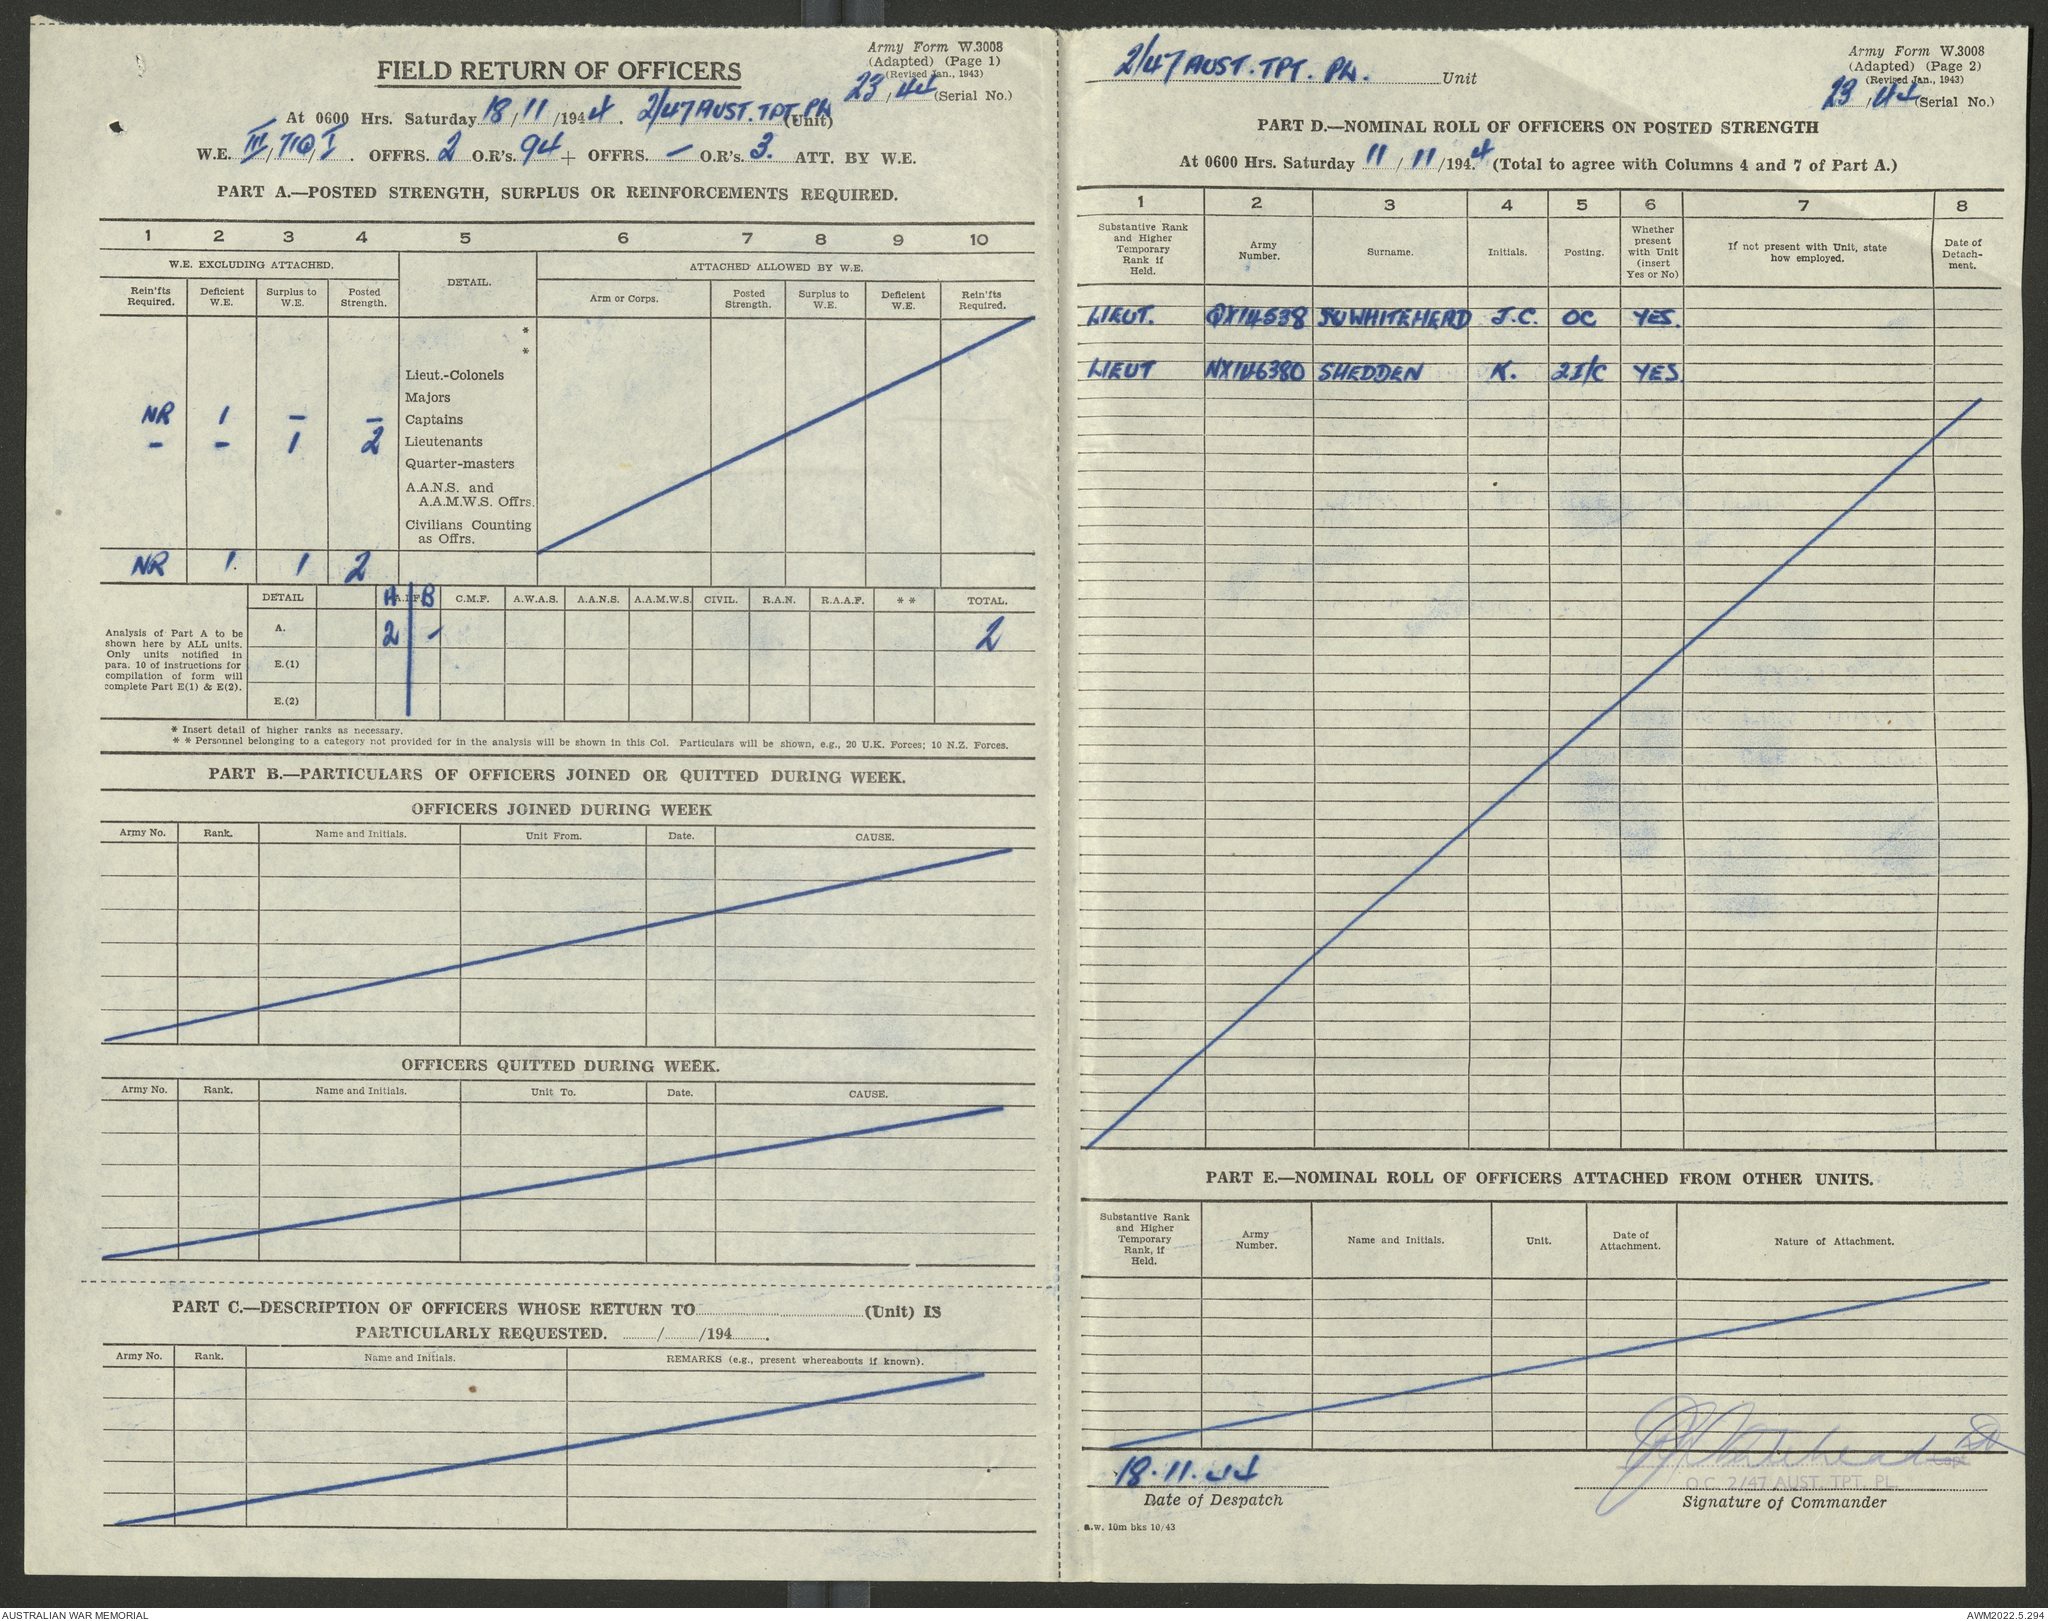 Army Form W.3008
(Adapted) (Page 1)
(Revised Jan., 1943)
23/44 (Serial No.)
FIELD RETURN OF OFFICERS
At 0600 Hrs. Saturday 18/11/1944. 2/47 AUST. TPT. PL. (Unit)
W.E. III/710/I. OFFRS. 2 O.R's. 94 + OFFRS. — O.R's 3. ATT. BY W.E.
PART A.—POSTED STRENGTH, SURPLUS OR REINFORCEMENTS REQUIRED.
1 2 3 4 5 6 7 8 9 10
W.E. EXCLUDING ATTACHED. DETAIL. ATTACHED ALLOWED BY W.E.
Rein'fts Required. Deficient W.E. Surplus to W.E. Posted Strength. Arm or Corps. Posted Strength. Surplus to W.E. Deficient W.E. Rein'fts Required.
*
*
Lieut.-Colonels
Majors
NR 1 — — Captains
— — 1 2 Lieutenants
Quarter-masters
A.A.N.S. and
A.A.M.W.S. Offrs.
Civilians Counting
as Offrs.
NR 1 1 2
DETAIL A A.I.F. B C.M.F. A.W.A.S. A.A.N.S. A.A.M.W.S. CIVIL. R.A.N. R.A.A.F. * * TOTAL.
Analysis of Part A to be
shown here by ALL units.
Only units notified in
para. 10 of instructions for
compilation of form will
complete Part E(1) & E(2).
A. 2 — 2
E.(1)
E.(2)
* Insert detail of higher ranks as necessary.
* * Personnel belonging to a category not provided for in the analysis will be shown in this Col. Particulars will be shown, e.g., 20 U.K. Forces; 10 N.Z. Forces.
PART B.—PARTICULARS OF OFFICERS JOINED OR QUITTED DURING WEEK.
OFFICERS JOINED DURING WEEK
Army No. Rank. Name and Initials. Unit From. Date. CAUSE.
OFFICERS QUITTED DURING WEEK.
Army No. Rank. Name and Initials. Unit To. Date. CAUSE.
PART C.—DESCRIPTION OF OFFICERS WHOSE RETURN TO (Unit) IS
PARTICULARLY REQUESTED. / /194 .
Army No. Rank. Name and Initials. REMARKS (e.g., present whereabouts if known).
2/47 AUST. TPT. PL. Unit
Army Form W.3008
(Adapted) (Page 2)
(Revised Jan., 1943)
23/44 (Serial No.)
PART D.—NOMINAL ROLL OF OFFICERS ON POSTED STRENGTH
At 0600 Hrs. Saturday 11/11/1944 (Total to agree with Columns 4 and 7 of Part A.)
1 2 3 4 5 6 7 8
Substantive Rank and Higher Temporary Rank if Held. Army Number. Surname. Initials. Posting. Whether present with Unit (insert Yes or No) If not present with Unit, state how employed. Date of Detach-ment.
LIEUT. QX14538 WHITEHEAD J.C. OC YES.
LIEUT NX146380 SHEDDEN K. 2I/C YES.
PART E.—NOMINAL ROLL OF OFFICERS ATTACHED FROM OTHER UNITS.
Substantive Rank and Higher Temporary Rank, if Held. Army Number. Name and Initials. Unit. Date of Attachment. Nature of Attachment.
18.11.44
Date of Despatch
Whitehead
Capt
O.C. 2/47 AUST. TPT. PL.
Signature of Commander
a.w. 10m bks 10/43
AUSTRALIAN WAR MEMORIAL
AWM2022.5.294